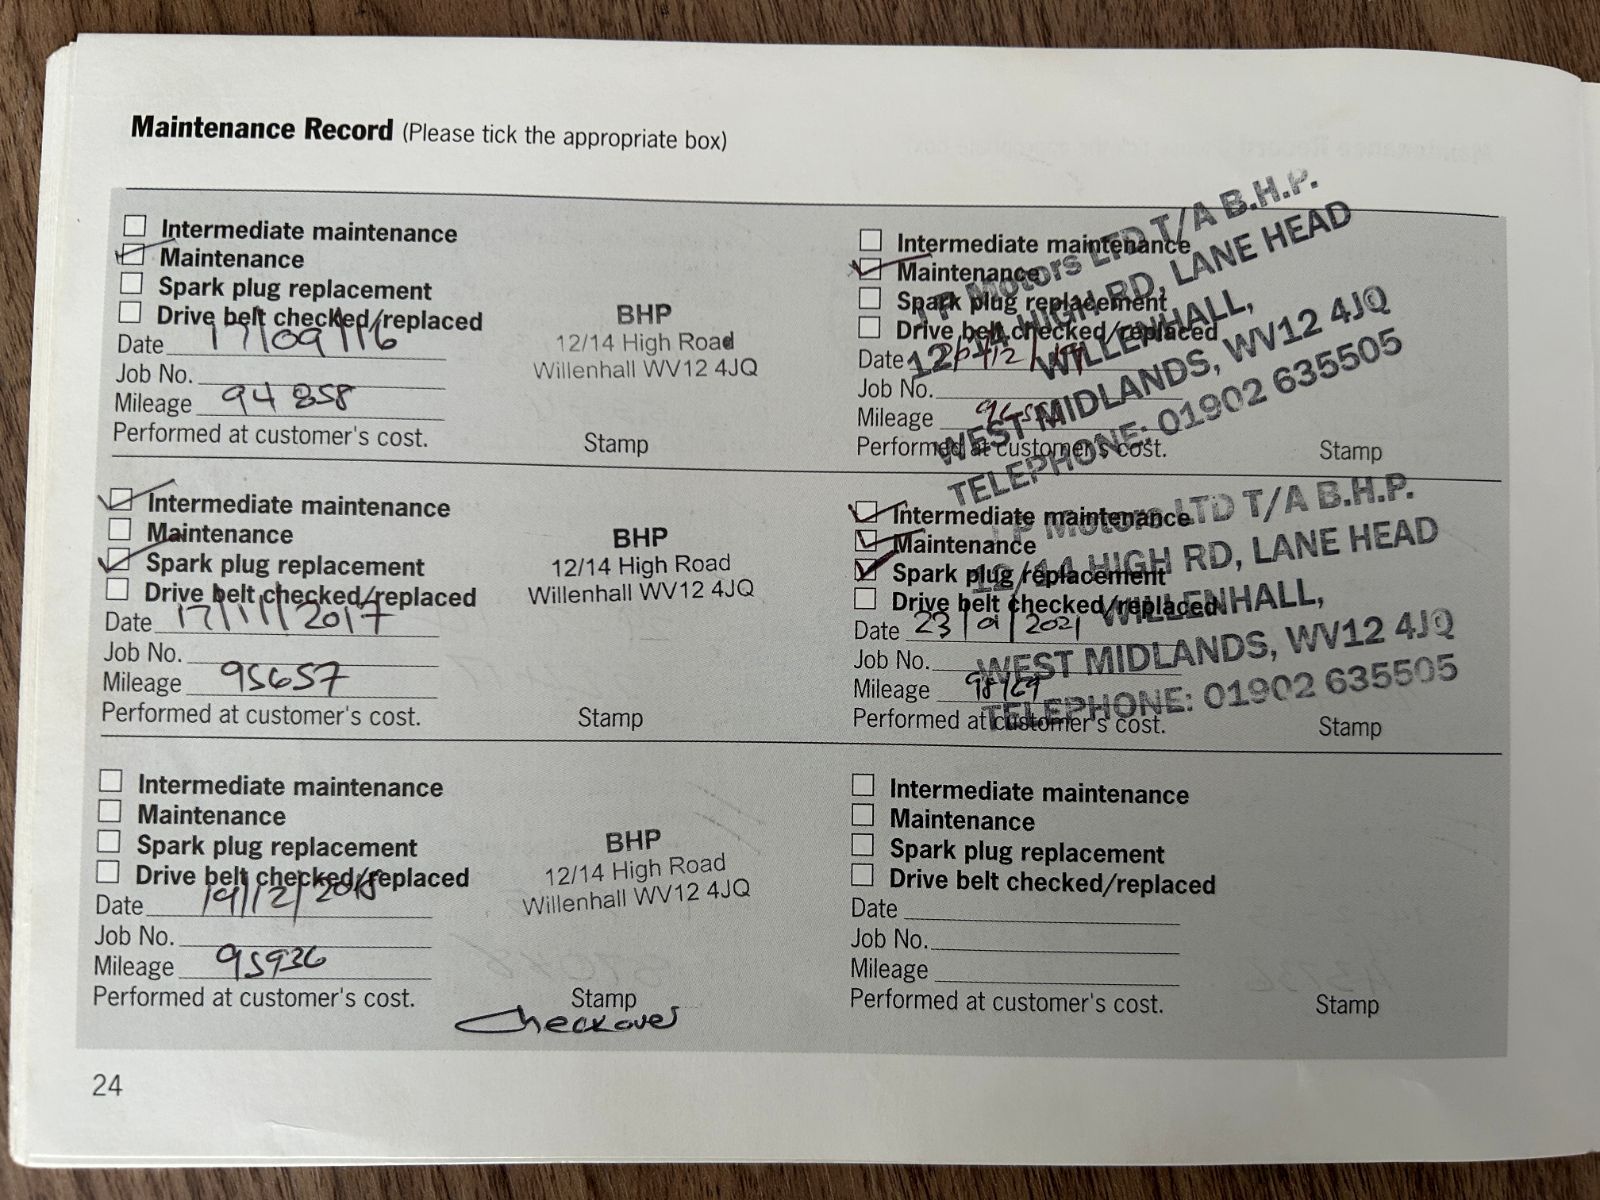 Maintenance Record (Please tick the appropriate box)
Intermediate maintenance
Maintenance
Spark plug replacement
Drive belt checked/replaced
Date 17/09/16
Job No.
Mileage 94 858
Performed at customer's cost.
BHP
12/14 High Road
Willenhall WV12 4JQ
Stamp
Intermediate maintenance
Maintenance
Spark plug replacement
Drive belt checked/replaced
Date 17/11/2017
Job No.
Mileage 95657
Performed at customer's cost.
BHP
12/14 High Road
Willenhall WV12 4JQ
Stamp
Intermediate maintenance
Maintenance
Spark plug replacement
Drive belt checked/replaced
Date 19/12/2018
Job No.
Mileage 95936
Performed at customer's cost.
BHP
12/14 High Road
Willenhall WV12 4JQ
Stamp
Checkover
Intermediate maintenance
Maintenance
Spark plug replacement
Drive belt checked/replaced
Date
Job No.
Mileage
Performed at customer's cost.
Motors LTD T/A B.H.P.
12/14 HIGH RD, LANE HEAD
WILLENHALL,
WEST MIDLANDS, WV12 4JQ
TELEPHONE: 01902 635505
Stamp
Intermediate maintenance
Maintenance
Spark plug replacement
Drive belt checked/replaced
Date 23/01/2021
Job No.
Mileage 98169
Performed at customer's cost.
Motors LTD T/A B.H.P.
12/14 HIGH RD, LANE HEAD
WILLENHALL,
WEST MIDLANDS, WV12 4JQ
TELEPHONE: 01902 635505
Stamp
Intermediate maintenance
Maintenance
Spark plug replacement
Drive belt checked/replaced
Date
Job No.
Mileage
Performed at customer's cost.
Stamp
24